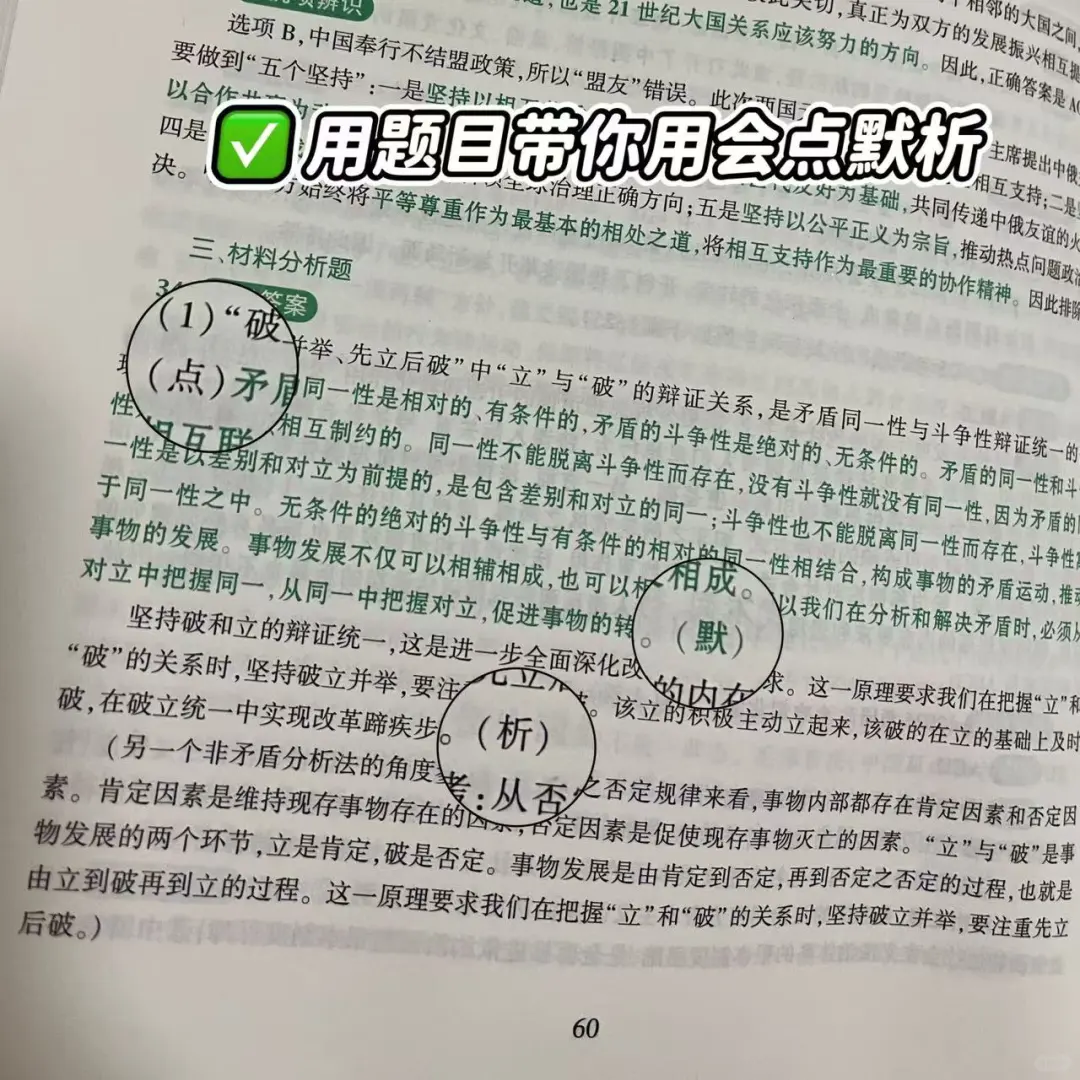 选项辨识
也是21世纪大国关系应该努力的方向。因此,正确答案是A
选项B,中国奉行不结盟政策,所以“盟友”错误。此次两国
真正为双方的发展振兴相互
个相邻的大国之间
要做到“五个坚持”:一是坚持以相互
✅用题目带你用会点默析
以合作共
主席提出中俄
四是
代友好为基础,共同传递中俄友谊的火
相互支持;二是
决。
方始终将平等尊重作为最基本的相处之道,将相互支持作为最重要的协作精神。因此排除
全球治理正确方向;五是坚持以公平正义为宗旨,推动热点问题政治
三、材料分析题
34
答案
(1)“破
并举、先立后破”中“立”与“破”的辩证关系,是矛盾同一性与斗争性辩证统一的
(点)矛盾
同一性是相对的、有条件的,矛盾的斗争性是绝对的、无条件的。矛盾的同一性和斗
性
相互联
相互制约的。同一性不能脱离斗争性而存在,没有斗争性就没有同一性,因为矛盾的同
一性是以差别和对立为前提的,是包含差别和对立的同一;斗争性也不能脱离同一性而存在,斗争性
于同一性之中。无条件的绝对的斗争性与有条件的相对的同一性相结合,构成事物的矛盾运动,推动
事物的发展。事物发展不仅可以相辅相成,也可以相
相成。
以我们在分析和解决矛盾时,必须从
对立中把握同一,从同一中把握对立,促进事物的转
。(默)
的内在
坚持破和立的辩证统一,这是进一步全面深化改
求。这一原理要求我们在把握“立”和
“破”的关系时,坚持破立并举,要注
先立
。该立的积极主动立起来,该破的在立的基础上及时
破,在破立统一中实现改革蹄疾步
。(析)
(另一个非矛盾分析法的角度
考:从否
之否定规律来看,事物内部都存在肯定因素和否定因
素。肯定因素是维持现存事物存在的因素,否定因素是促使现存事物灭亡的因素。“立”与“破”是事
物发展的两个环节,立是肯定,破是否定。事物发展是由肯定到否定,再到否定之否定的过程,也就是
由立到破再到立的过程。这一原理要求我们在把握“立”和“破”的关系时,坚持破立并举,要注重先立
后破。)
60